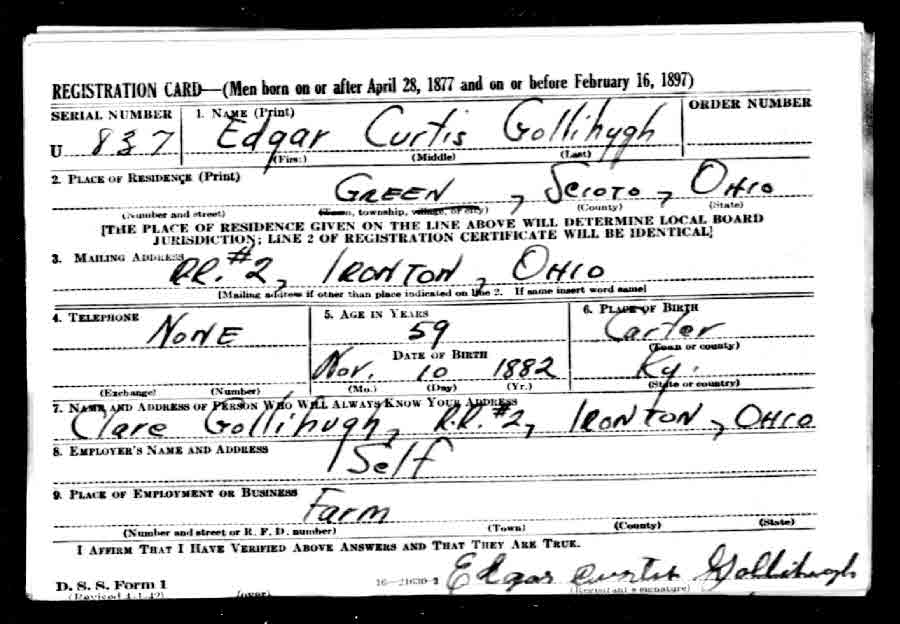 REGISTRATION CARD—(Men born on or after April 28, 1877 and on or before February 16, 1897)
SERIAL NUMBER 1. NAME (Print) ORDER NUMBER
U 837 Edgar Curtis Gollihugh
(First) (Middle) (Last)
2. PLACE OF RESIDENCE (Print)
GREEN, SCIOTO, OHIO
(Number and street) (Town, township, village, or city) (County) (State)
[THE PLACE OF RESIDENCE GIVEN ON THE LINE ABOVE WILL DETERMINE LOCAL BOARD
JURISDICTION; LINE 2 OF REGISTRATION CERTIFICATE WILL BE IDENTICAL]
3. MAILING ADDRESS
R.R. #2, IRONTON, OHIO
[Mailing address if other than place indicated on line 2. If same insert word same]
4. TELEPHONE 5. AGE IN YEARS 6. PLACE OF BIRTH
NONE 59 Carter
DATE OF BIRTH (Town or county)
Nov. 10 1882 Ky.
(Exchange) (Number) (Mo.) (Day) (Yr.) (State or country)
7. NAME AND ADDRESS OF PERSON WHO WILL ALWAYS KNOW YOUR ADDRESS
Clare Gollihugh, R.R. #2, IRONTON, OHIO
8. EMPLOYER'S NAME AND ADDRESS
Self
9. PLACE OF EMPLOYMENT OR BUSINESS
Farm
(Number and street or R. F. D. number) (Town) (County) (State)
I AFFIRM THAT I HAVE VERIFIED ABOVE ANSWERS AND THAT THEY ARE TRUE.
Edgar Curtis Gollihugh
D. S. S. Form 1 16—21630-2 (Registrant's signature)
(Revised 4-1-42) (over)